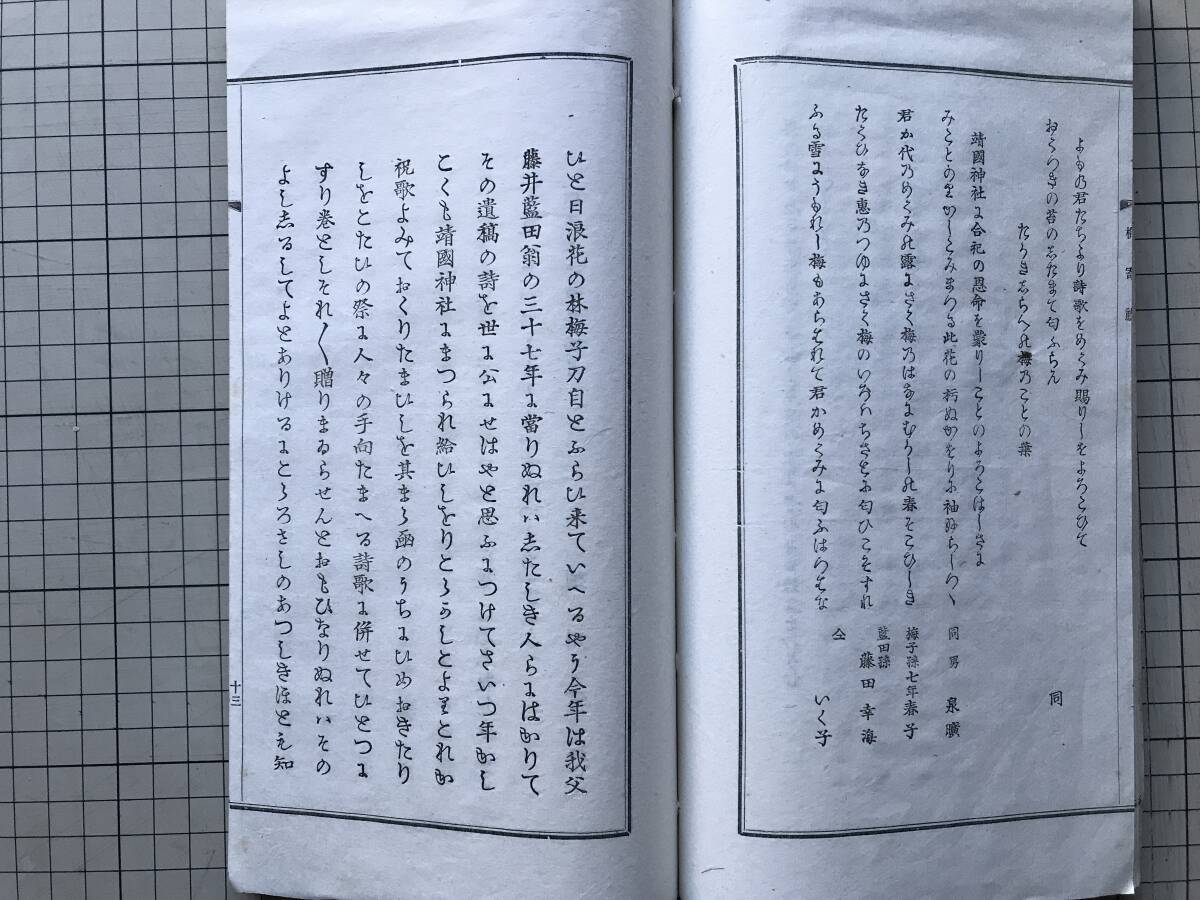 よもの君たちより詩歌をめくみ賜りしをよろこひて
おくつきの苔のしたまて匂ふらん
たかきしらへの梅のことの葉
同
靖國神社に合祀の恩命を蒙りしことのよろこはしさに
みことのりかしこみまつる此花の朽ぬかをりに袖ぬらしつゝ
同男 泉曠
君か代のめくみの露にさく梅のはなにむかしの春そこひしき
梅子孫七年春子
たくひなき惠のつゆにさく梅のいろはちさとに匂ひこそすれ
藍田孫 藤田幸海
ふる雪にうもれし梅もあらはれて君かめくみに匂ふはつはな
仝 いく子
ひと日浪花の林梅子刀自とふらひ来ていへるやう今年は我父
藤井藍田翁の三十七年に當りぬれはしたしき人らにはかりて
その遺稿の詩を世に公にせはやと思ふにつけてさいつ年かし
こくも靖國神社にまつられ給ひしをりところかしとよりとれか
祝歌よみておくりたまひしを其まゝ函のうちにひめおきたり
しをとたひの祭に人々の手向たまへる詩歌に併せてひとつに
すり巻としそれ〱贈りまゐらせんとおもひなりぬれはその
よししるしてよとありけるにこゝろさしのあつしきほとも知
十三